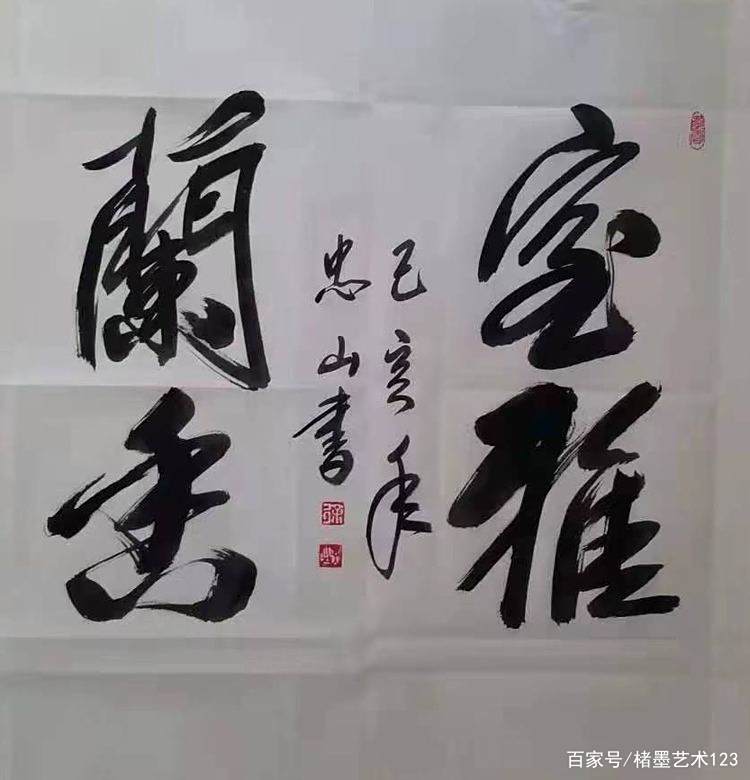 室雅
蘭香
己亥年
忠山書
百家号/楮墨艺术123